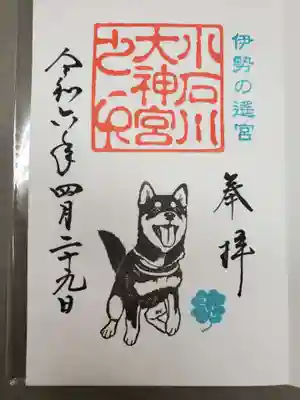 伊勢の遙宮
奉拝
小石川
大神宮
之印
令和六年四月二十九日